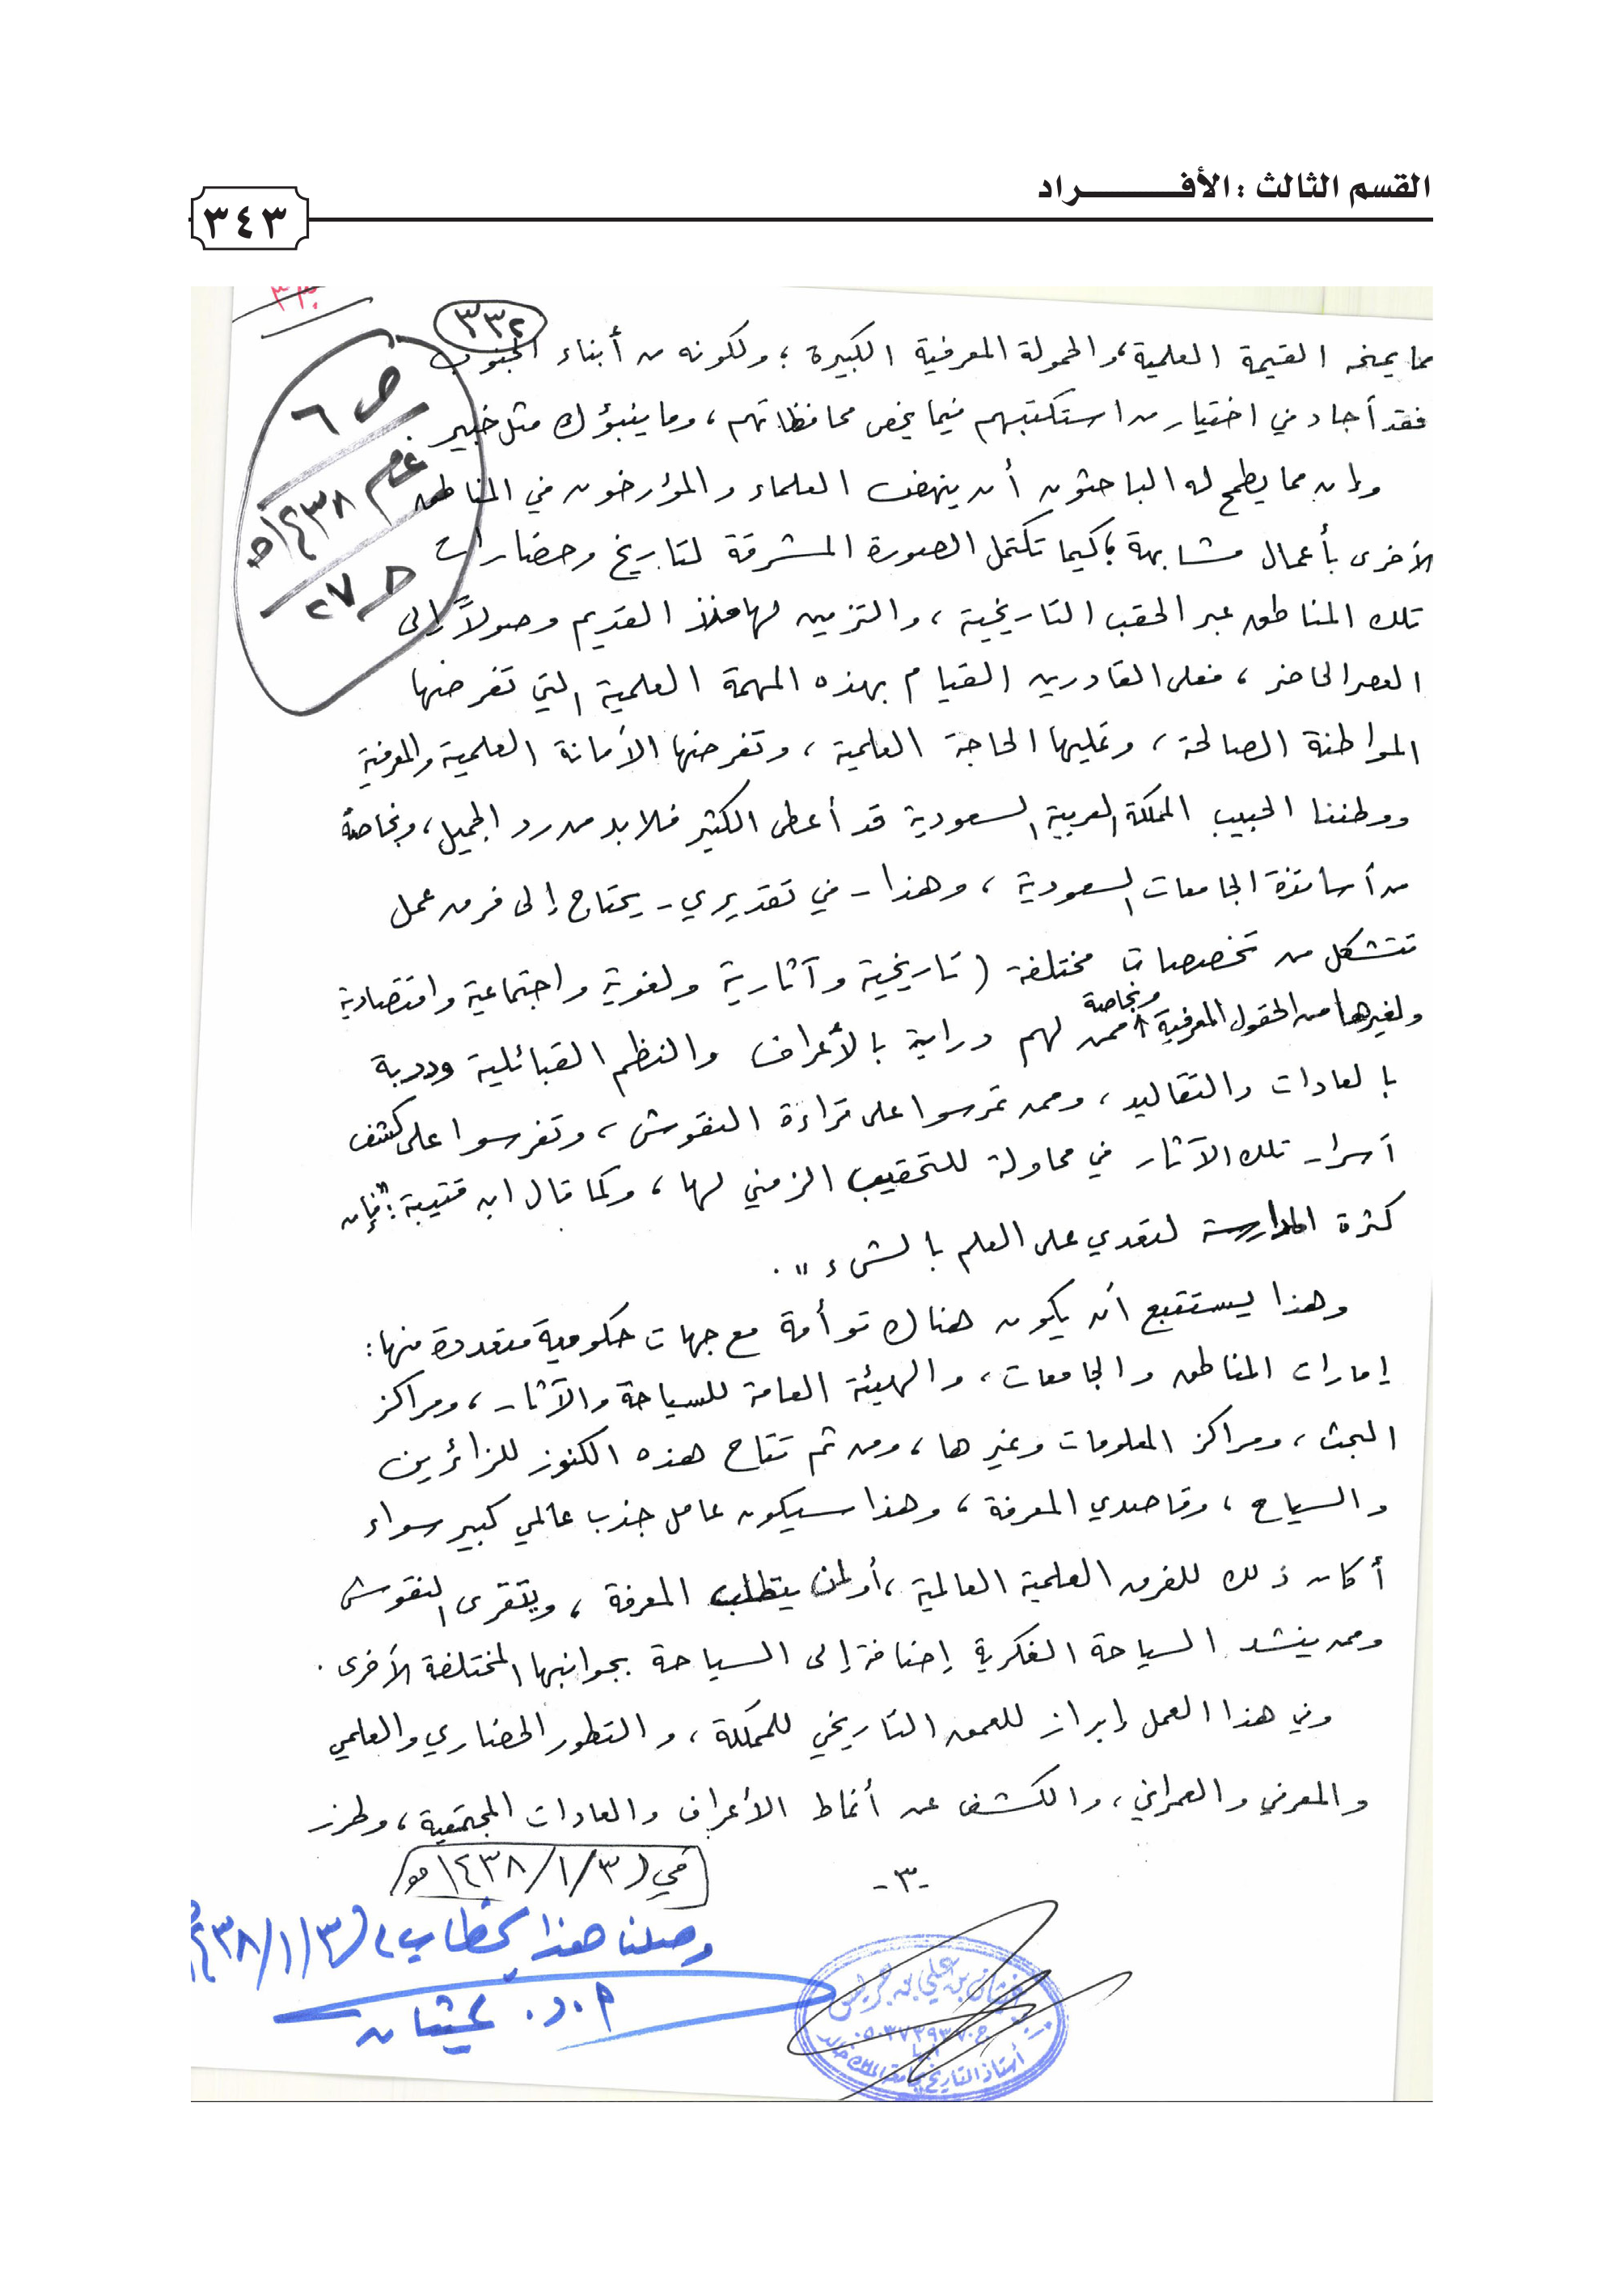 القسم الثالث : الأفـــــــــراد
٣٤٣
٣٣٢
ص ٦
عام ١٤٣٨هـ
ح / ٢٧
مما يمنحه القيمة العلمية، والحمولة المعرفية الكبيرة ؛ ولكونه من أبناء الجنوب
فقد أجاد في اختيار من استكتبهم فيما يخص محافظاتهم ، وما ينبؤك مثل خبير
وإن مما يطمح له الباحثون أن ينهض العلماء والمؤرخون في المناطق
الأخرى بأعمال مشابهة ؛ كيما تكتمل الصورة المشرقة لتاريخ وحضارات
تلك المناطق عبر الحقب التاريخية ، والتزمين لها منذ القديم وصولاً إلى
العصر الحاضر ، فعلى القادرين القيام بهذه المهمة العلمية التي تفرضها
المواطنة الصالحة ، وتمليها الحاجة العلمية ، وتفرضها الأمانة العلمية والمعرفية
ووطننا الحبيب المملكة العربية السعودية قد أعطى الكثير فلابد من رد الجميل ، وبخاصة
من أساتذة الجامعات السعودية ، وهذا - في تقديري - يحتاج إلى فرق عمل
تتشكل من تخصصات مختلفة ( تاريخية وآثارية ولغوية واجتماعية واقتصادية
ولغيرها من الحقول المعرفية وبخاصة ممن لهم دراية بالأعراف والنظم القبائلية ودربة
بالعادات والتقاليد ، وممن تمرسوا على قراءة النقوش ، وتفرسوا على كشف
أسرار تلك الآثار في محاولة للتحقيب الزمني لها ، وكما قال ابن قتيبة : " فإن
كثرة المدارسة لتعدي على العلم بالشيء " .
وهذا يستتبع أن يكون هناك توأمة مع جهات حكومية متعددة منها :
إمارات المناطق والجامعات ، والهيئة العامة للسياحة والآثار ، ومراكز
البحث ، ومراكز المعلومات وغيرها ، ومن ثم تتاح هذه الكنوز للزائرين
والسياح ، وقاصدي المعرفة ، وهذا سيكون عامل جذب عالمي كبير سواء
أكان ذلك للفرق العلمية العالمية ، أو لمن يتطلب المعرفة ، ويتقرى النقوش
وممن ينشد السياحة الفكرية إضافة إلى السياحة بجوانبها المختلفة الأخرى .
وفي هذا العمل إبراز للعمق التاريخي للمملكة ، والتطور الحضاري والعلمي
والمعرفي والعمراني ، والكشف عن أنماط الأعراف والعادات المجتمعية ، وطرز
- ٣ -
في (٣/١/١٤٣٨هـ)
وصلنا هذا الخطاب في (٣/١/١٤٣٨
أ.د. غيثان
غيثان بن علي بن جريس
أستاذ التاريخ بجامعة الملك خالد